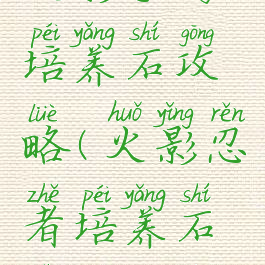 péi yǎng shí gōng
培养石攻
lüè huǒ yǐng rěn
略(火影忍
zhě péi yǎng shí
者培养石